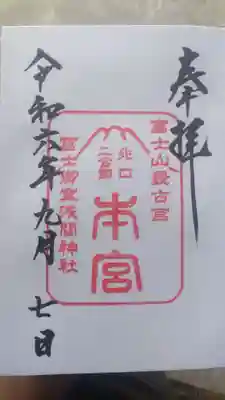 奉拝
富士山最古宮
北口
二合目
本宮
冨士御室浅間神社
令和六年九月七日